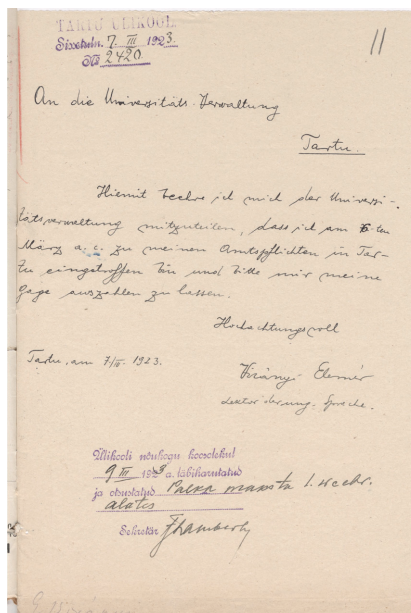 TARTU ÜLIKOOL
Sissetuln. 7. III 1923.
№ 2420.
11
An die Universitäts-Verwaltung
Tartu.
Hiemit beehre ich mich der Universi-
tätsverwaltung mitzuteilen, dass ich am 6-ten
März a. c. zu meinen Amtspflichten in Tar-
tu eingetroffen bin und bitte mir meine
Gage auszahlen zu lassen.
Hochachtungsvoll
Tartu, am 7/III. 1923.
Virányi Elemér
Lektor der ung. Sprache.
Ülikooli nõukogu koosolekul
9 III 1923 a. läbiharutatud
ja otsustatud Palka maksta 1.
alates
Sekretär